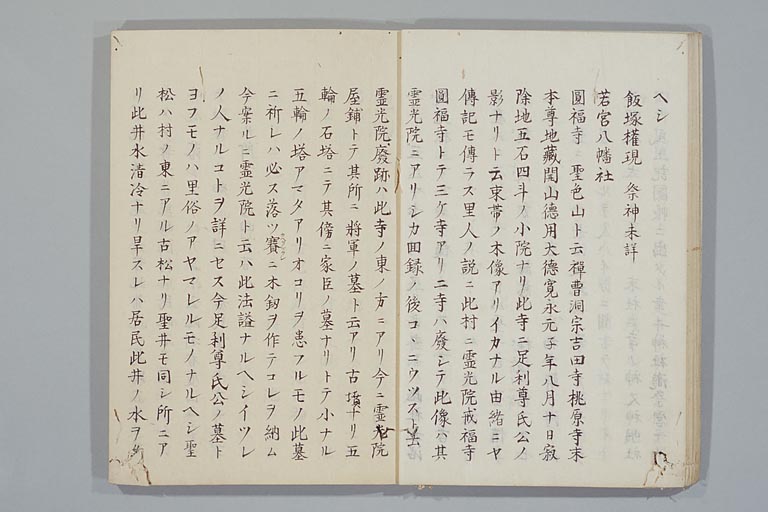 ヘシ
飯塚權現 祭神未詳
若宮八幡社
圓福寺ニ聖色山ト云禪曹洞宗吉田寺桃原寺末
本尊地藏開山德用大德寛永元子年八月十日寂
除地五石四斗ノ小院ナリ此寺ニ足利尊氏公ノ
影ナリト云束帯ノ木像アリイカナル由緒ニヤ
傳記モ傳ラス里人ノ説ニ此村ニ霊光院戒福寺
圓福寺トテ三ケ寺アリ二寺ハ廢シテ此像ハ其
霊光院ニアリシカ回録ノ後コヽニウツスト云
霊光院廢跡ハ此寺ノ東ノ方ニアリ今ニ霊光院
屋鋪トテ其所ニ將軍ノ墓ト云アリ古墳ナリ五
輪ノ石塔ニテ其傍ニ家臣ノ墓ナリトテ小ナル
五輪ノ塔アマタアリオコリヲ患フルモノ此墓
ニ祈レハ必ス落ツ賽ニ木釼ヲ作テコレヲ納ム
今案ルニ霊光院ト云ハ此法謚ナルヘシイツレ
ノ人ナルコトヲ詳ニセス今足利尊氏公ノ墓ト
ヨフモノハ里俗ノアヤマレルモノナルヘシ聖
松ハ村ノ東ニアル古松ナリ聖井モ同シ所ニア
リ此井水清冷ナリ旱スレハ居民此井ノ水ヲ